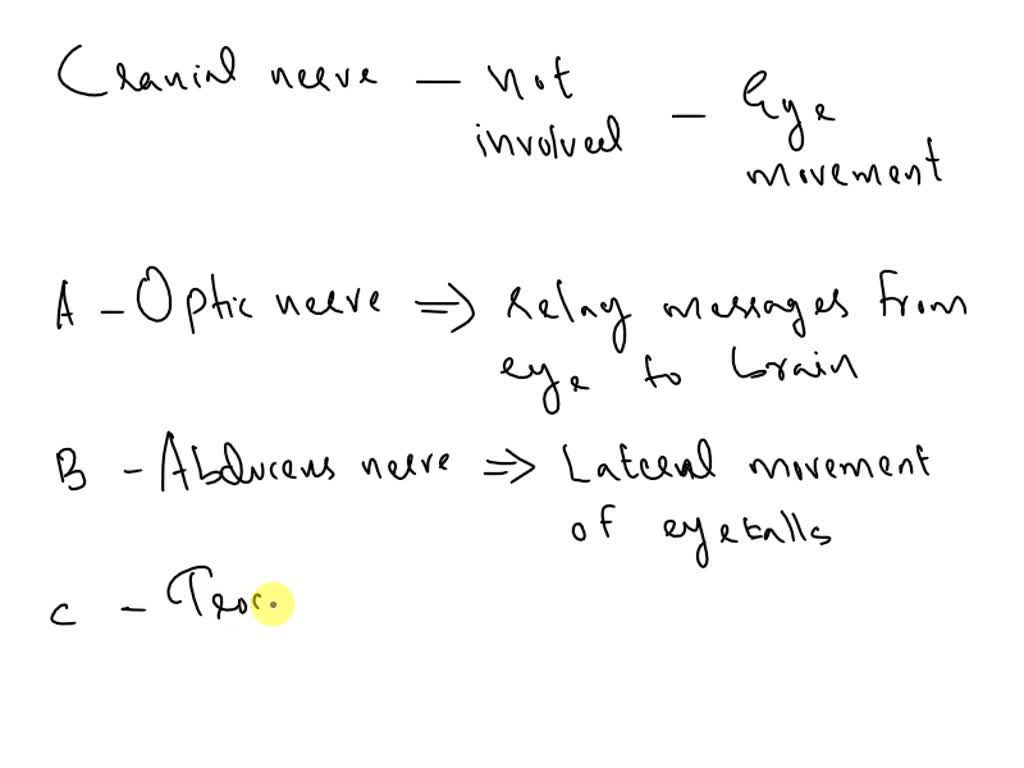 Cranial nerve - not involved - Eye movement
A - Optic nerve => Relay messages from
eye to brain
B - Abducens nerve => Lateral movement
of eyeballs
C - Troc